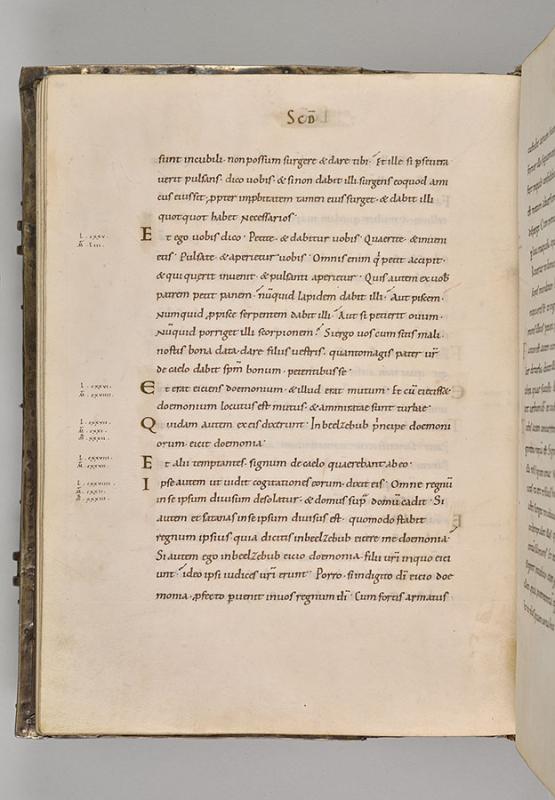 SCD̄
sunt incubili · non possum surgere & dare tibi · Et ille si pseuera
uerit pulsans · dico uobis · & si non dabit illi surgens eoquod ami
cus eius sit · ꝓpter improbitatem tamen eius surget · & dabit illi
quotquot habet necessarios ·
Et ego uobis dico · Petite · & dabitur uobis · Quaerite · & inueni
etis · Pulsate · & aperietur uobis · Omnis enim q̇ petit accipit ·
& qui querit inuenit · & pulsanti aperietur · Quis autem ex uob
patrem petit panem · nūquid lapidem dabit illi · Aut piscem ·
Numquid ꝓ pisce serpentem dabit illi · Aut si petierit ouum ·
Nūquid porriget illi scorpionem · Si ergo uos cum sitis mali ·
nostis bona data dare filiis uestris · quantomagis pater ur̄
de caelo dabit spm̄ bonum · petentibus se ·
Et erat eiciens doemonium · & illud erat mutum · Et cū eiecisset
doemonium locutus est mutus · & ammiratae sunt turbae ·
Quidam autem ex eis dixerunt · In beelzebub principe doemoni
orum · eicit doemonia ·
Et alii temptantes · signum de caelo quaerebant ab eo ·
Ipse autem ut uidit cogitationes eorum · dixit eis · Omne regnū
in se ipsum diuisum desolatur · & domus sup̄ domū cadit · Si
autem et satanas in se ipsum diuisus est · quomodo stabit
regnum ipsius quia dicitis in beelzebub eicere me doemonia ·
Si autem ego in beelzebub eicio doemonia · filii ur̄i in quo eici
unt · ideo ipsi iudices ur̄i erunt · Porro · si in digito dī eicio doe
monia · ꝓfecto ꝑuenit in uos regnum dī · Cum fortis armatus